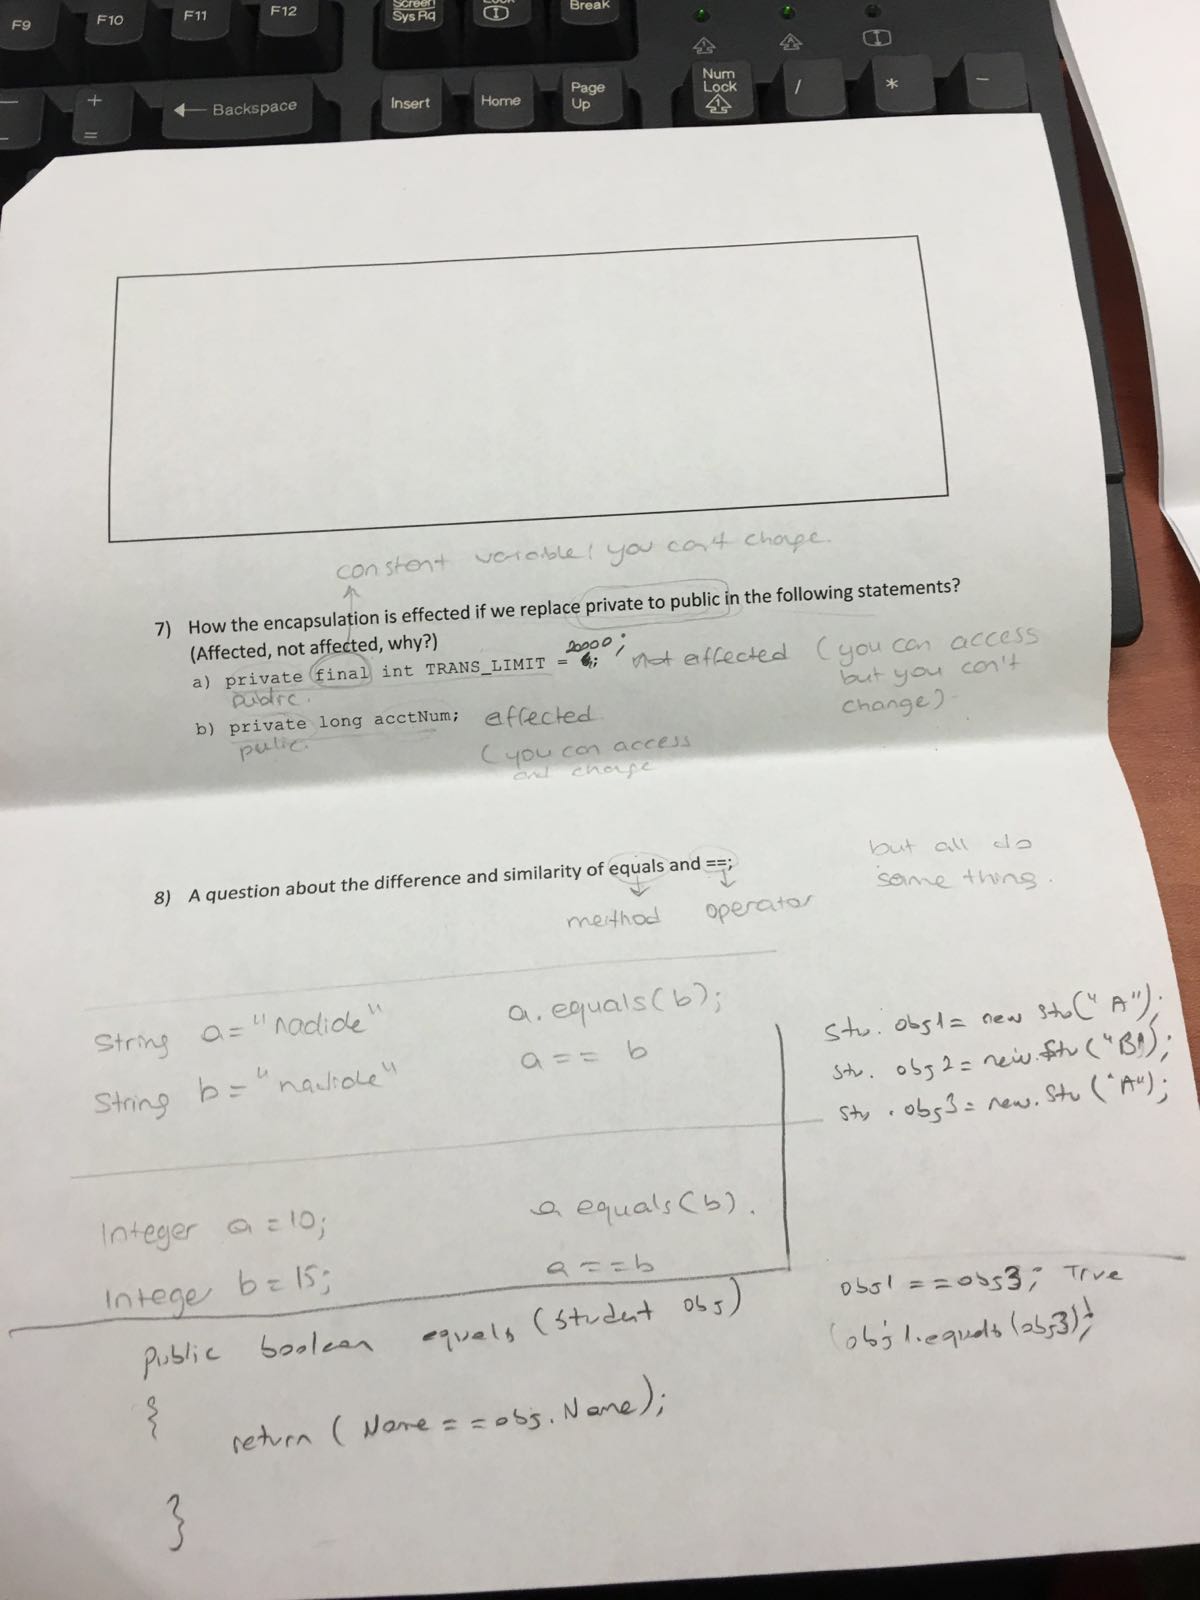 F9
F10
F11
F12
Screen
Sys Rq
Break
+
=
Backspace
Insert
Home
Page
Up
Num
Lock
/
*
-
constent variable! you can't change.
7) How the encapsulation is effected if we replace private to public in the following statements?
(Affected, not affected, why?)
a) private final int TRANS_LIMIT = 20000; not effected (you can access
but you can't
change)
public.
b) private long acctNum; effected
pulic.
(you can access
and change
8) A question about the difference and similarity of equals and ==;
method operator
but all do
same thing.
String a = "nadide" a.equals(b);
String b = "nadide" a == b
Stu. obj1 = new stu("A");
Stu. obj2 = new. Stu("B");
Stu. obj3 = new. Stu("A");
Integer a = 10; a equals(b).
Integer b = 15; a == b
obj1 == obj3; True
(obj1.equals(obj3));
public boolean equals (Student obj)
{
return (Name == obj.Name);
}